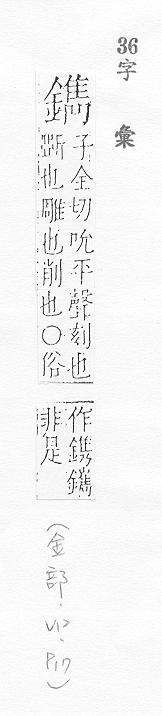 36字 彙
鐫
子全切吮平聲刻也
斲也雕也削也○俗
作鎸鑴
非是
(金部.VP.P17)